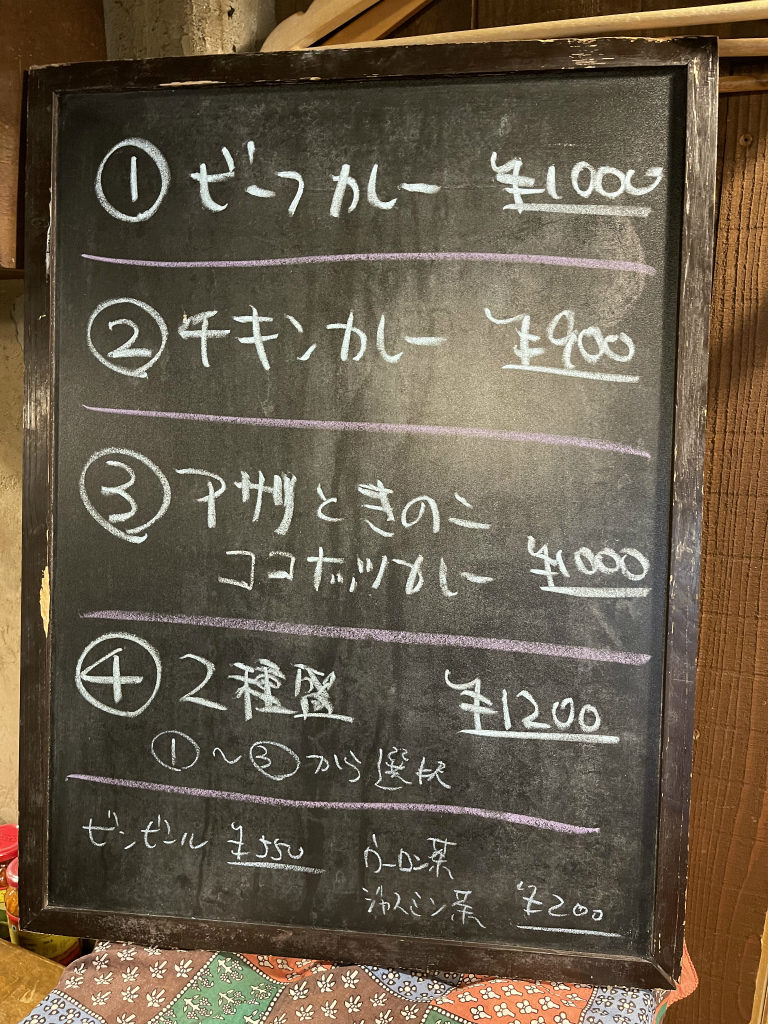 ① ビーフカレー ¥1000
② チキンカレー ¥900
③ アサリときのこ
ココナッツカレー ¥1000
④ 2種盛 ¥1200
①〜③から選択
ビンビール ¥550 ウーロン茶
ジャスミン茶 ¥200